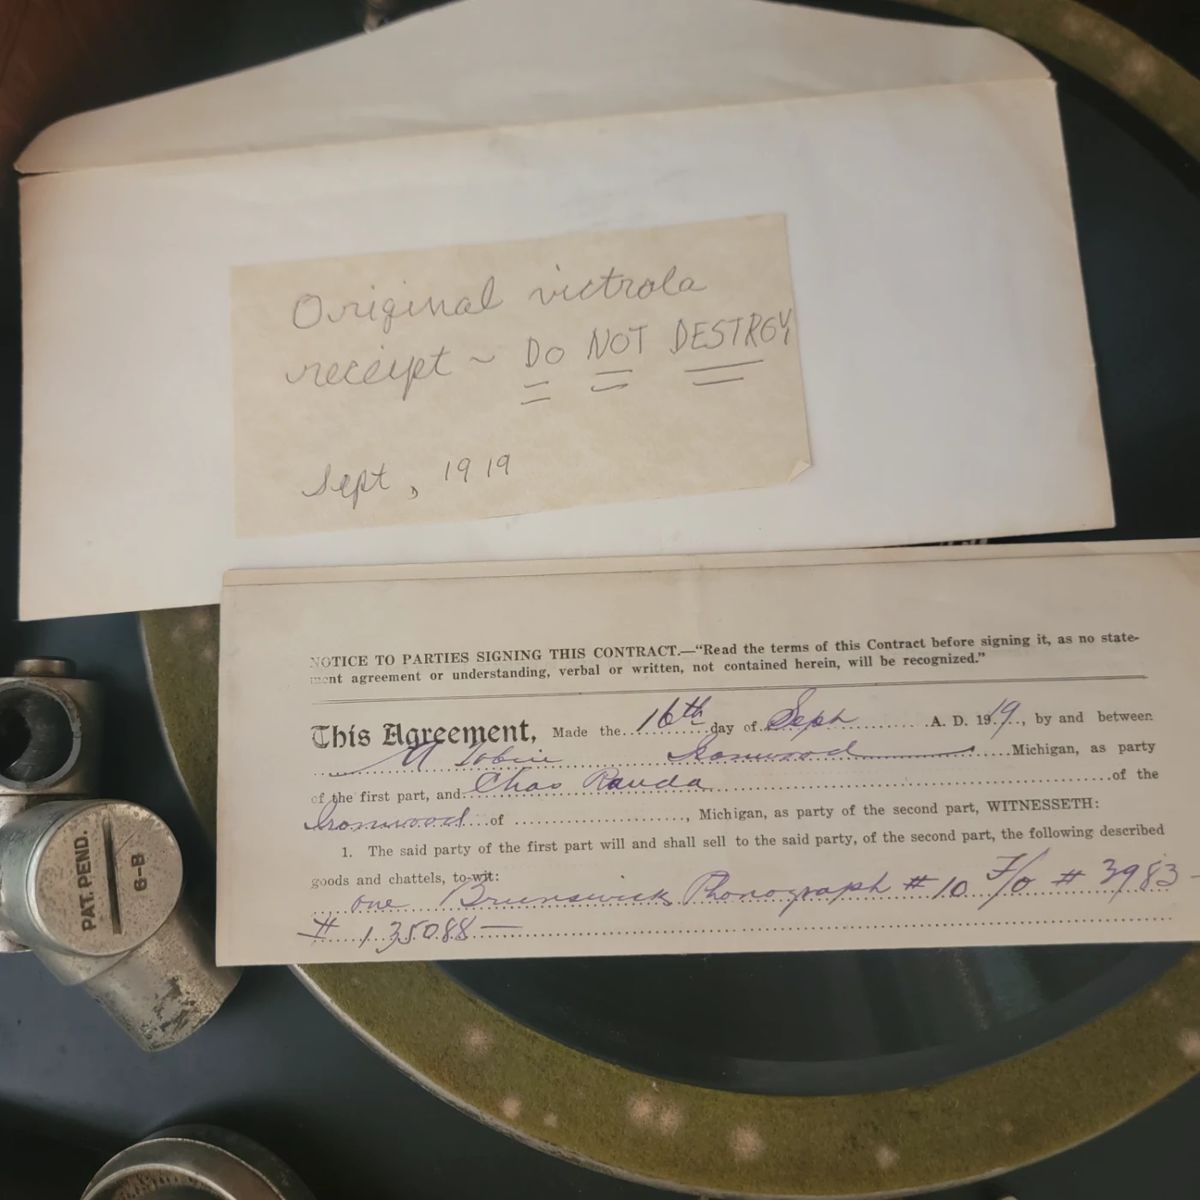 Original victrola
receipt ~ DO NOT DESTROY
Sept, 1919
NOTICE TO PARTIES SIGNING THIS CONTRACT.—"Read the terms of this Contract before signing it, as no state-
ment agreement or understanding, verbal or written, not contained herein, will be recognized."
This Agreement, Made the 16th day of Sept A. D. 1919, by and between
A Tobin Ironwood Michigan, as party
of the first part, and Chas Rauda of the
Ironwood of , Michigan, as party of the second part, WITNESSETH:
1. The said party of the first part will and shall sell to the said party, of the second part, the following described
goods and chattels, to-wit:
one Brunswick Phonograph # 10 F/O # 3983 -
# 135088 —
PAT. PEND.
6-B